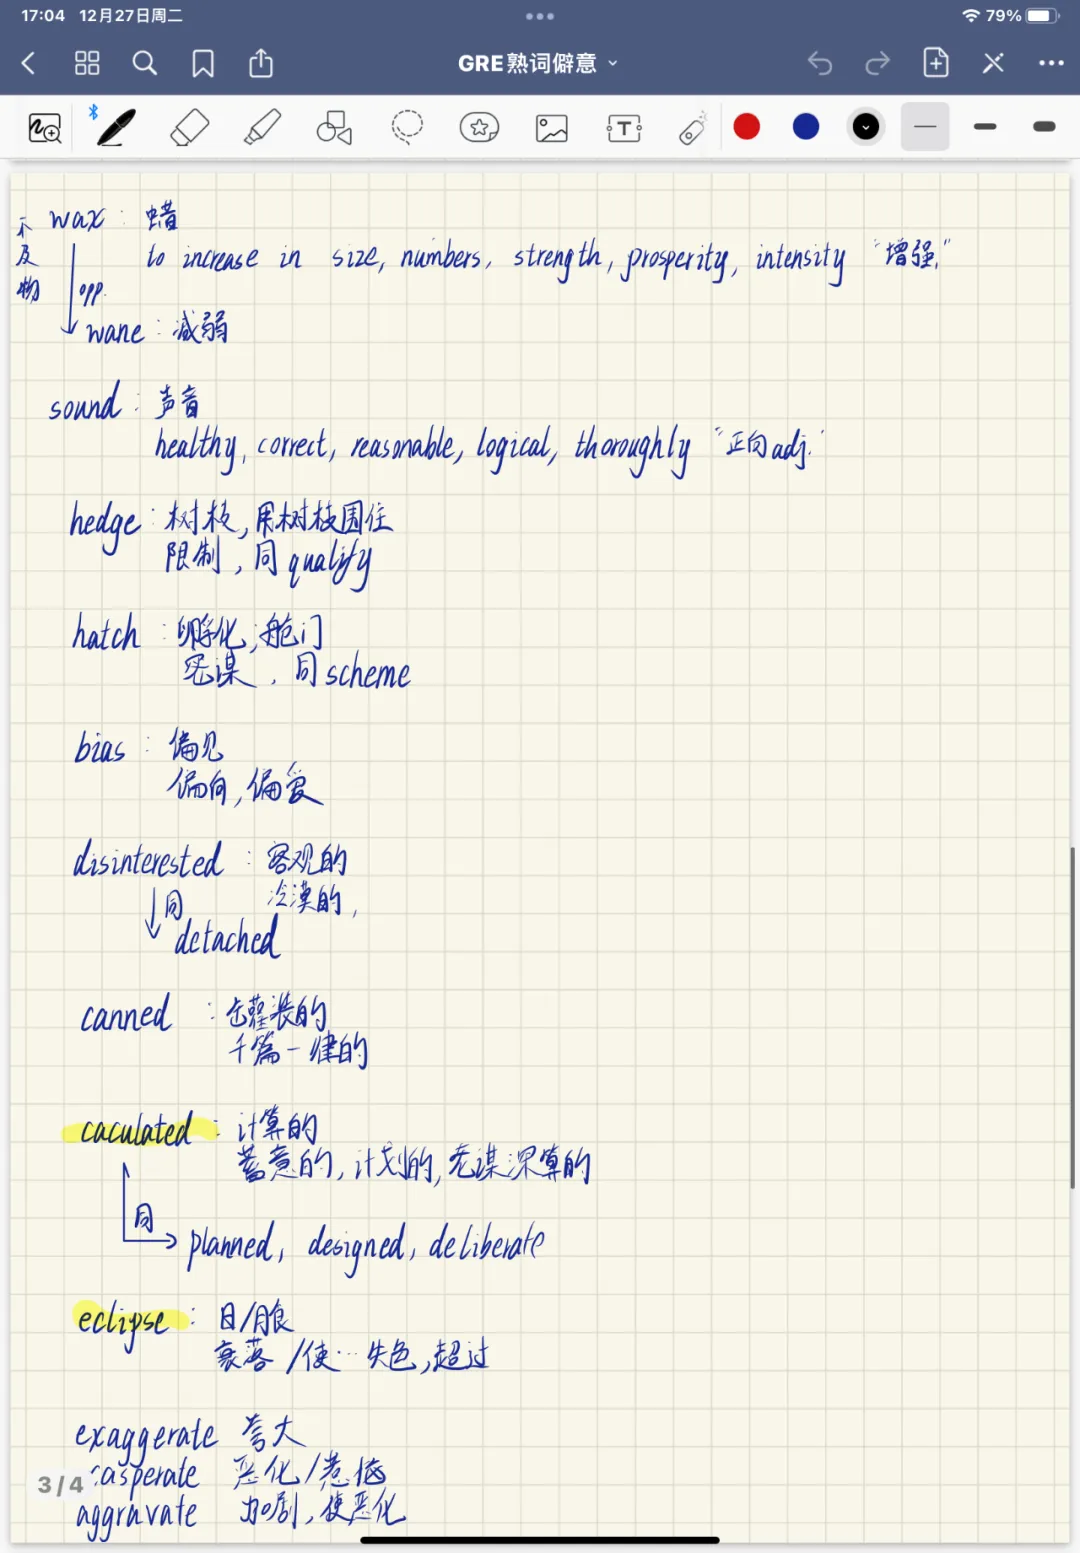 17:04 12月27日周二
79%
GRE熟词僻意
T
不及物
wax: 蜡
to increase in size, numbers, strength, prosperity, intensity "增强."
opp.
wane: 减弱
sound: 声音
healthy, correct, reasonable, logical, thoroughly "正向adj."
hedge: 树枝,用树枝围住
限制,同qualify
hatch: 孵化;舱门
密谋,同scheme
bias: 偏见
偏向,偏爱
disinterested: 客观的
冷漠的,
同
detached
canned: 罐装的
千篇一律的
caculated: 计算的
蓄意的,计划的,老谋深算的
同
planned, designed, deliberate
eclipse: 日/月食
衰落/使…失色,超过
exaggerate 夸大
casperate 恶化/惹恼
3/4
aggravate 加剧,使恶化